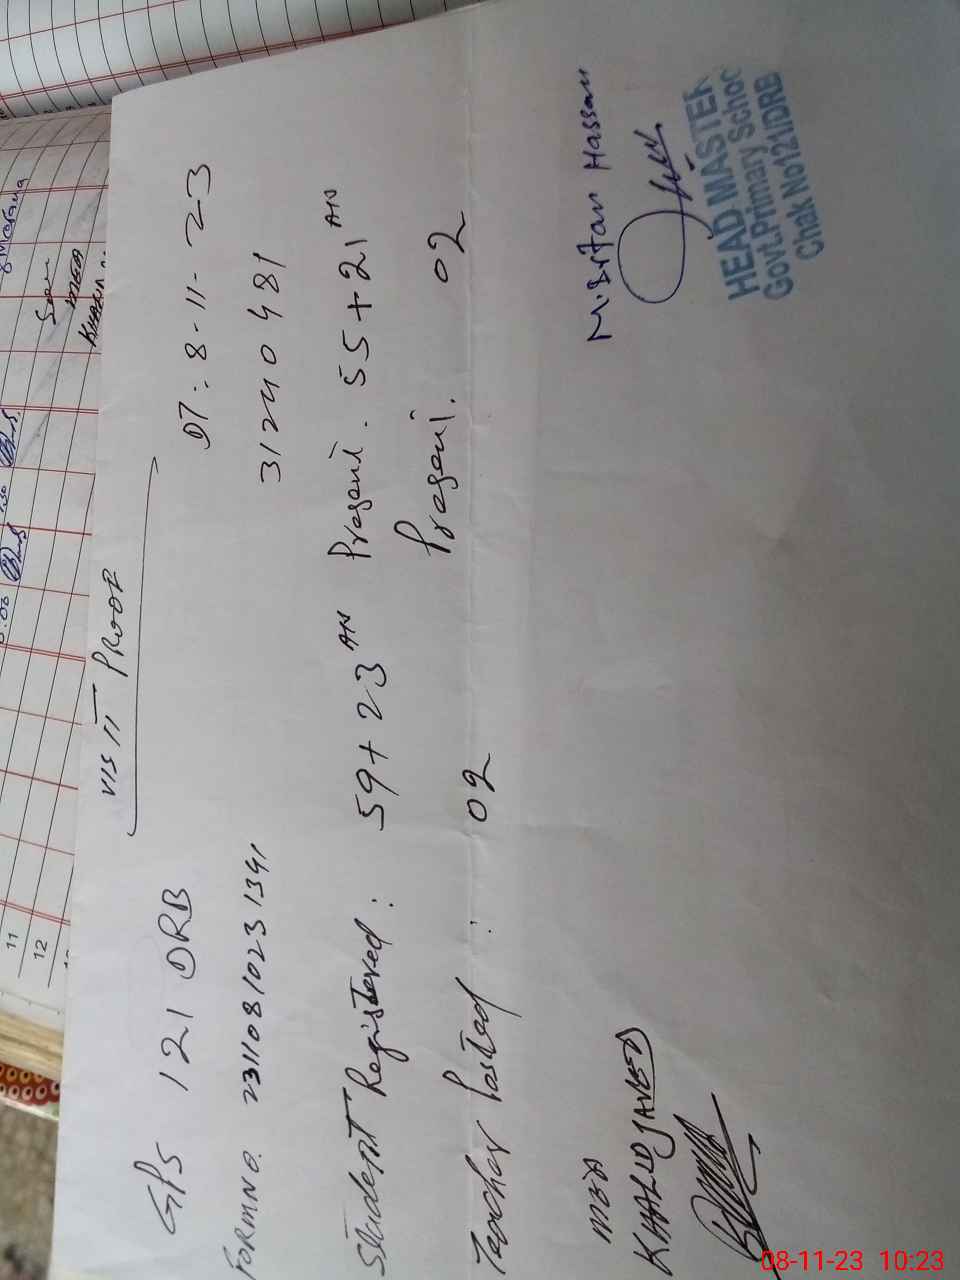 VISIT PROOF
GPS 121 DRB DT: 8-11-23
FORM NO. 23110810231391 31240481
Student Registered: 59+23 AN Present. 55+21 AN
Teacher Posted: 02 Present. 02
MEA
KHALID JAVEED
M. Irfan Hassan
HEAD MASTER
Govt.Primary School
Chak No121/DRB
11
12
Sign
MEA
KHALID
08-11-23 10:23